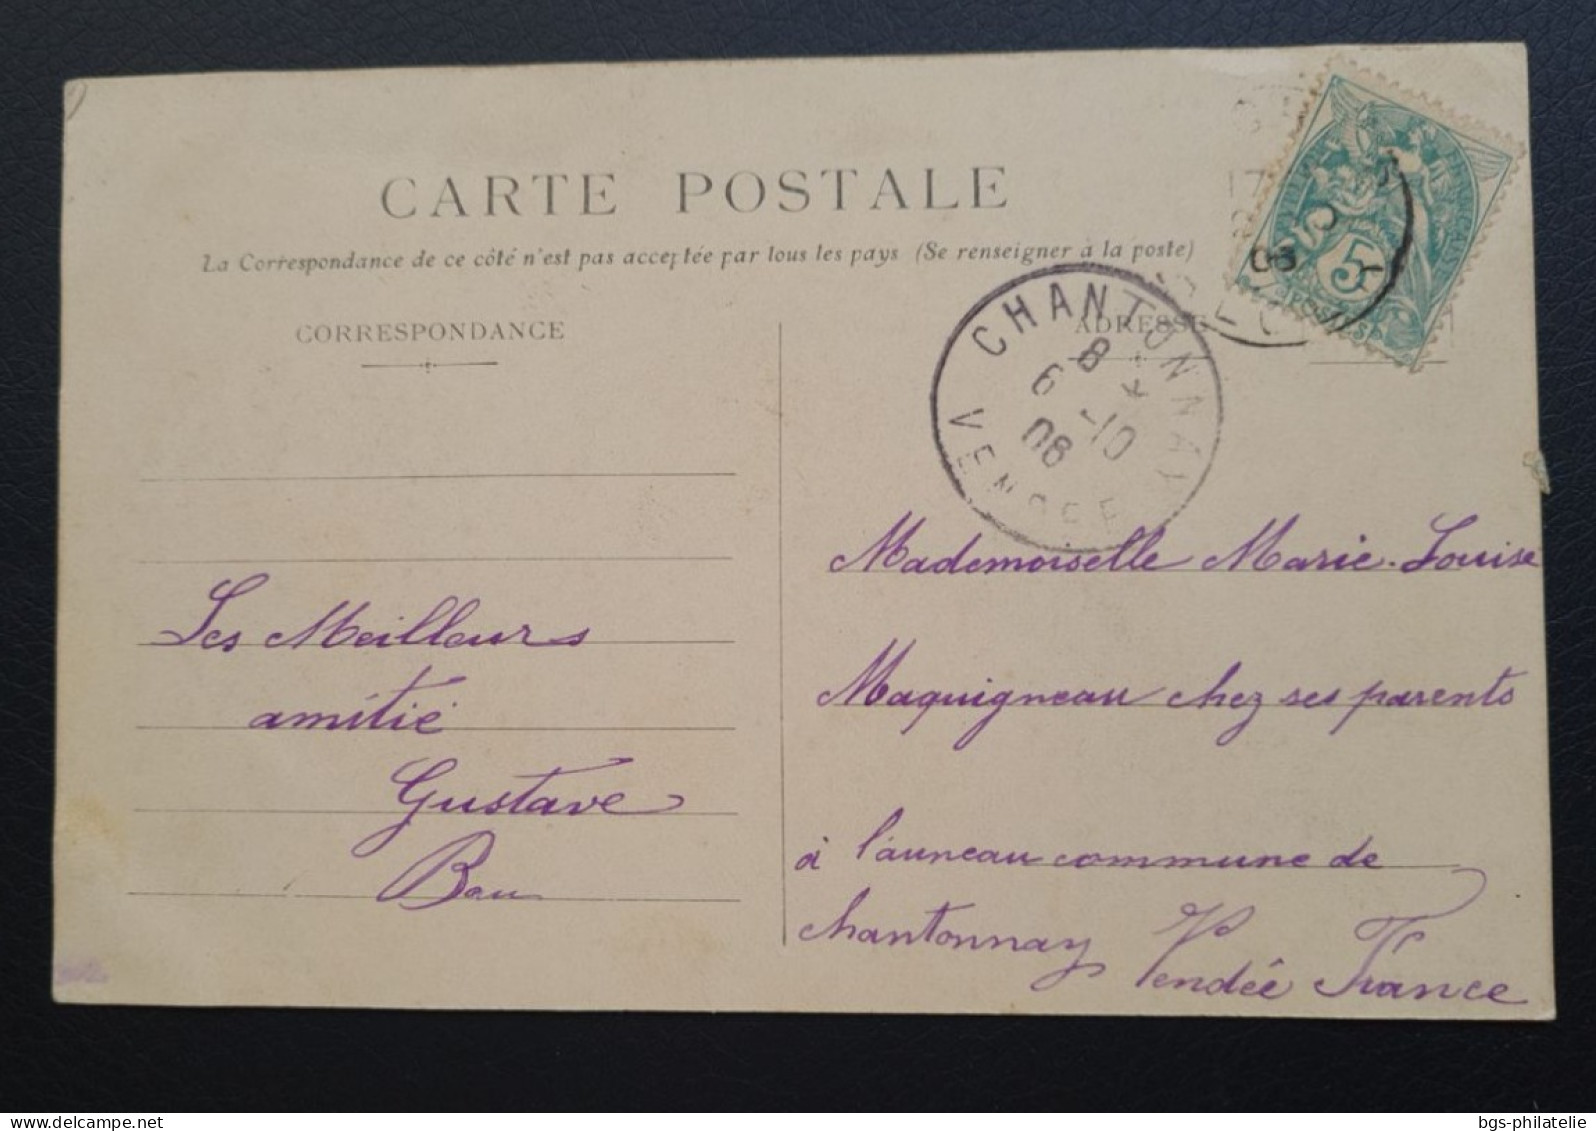 CARTE POSTALE
La Correspondance de ce côté n'est pas acceptée par tous les pays (Se renseigner à la poste)
CORRESPONDANCE
ADRESSE
CHANTONNAY
8
6 -10
08
VENDEE
17
08
5
POSTES
Les Meilleurs
amitié
Gustave
Bau
Mademoiselle Marie-Louise
Maquigneau chez ses parents
à l'auneau commune de
chantonnay Vendée France
www.delcampe.net
bgs-philatelie